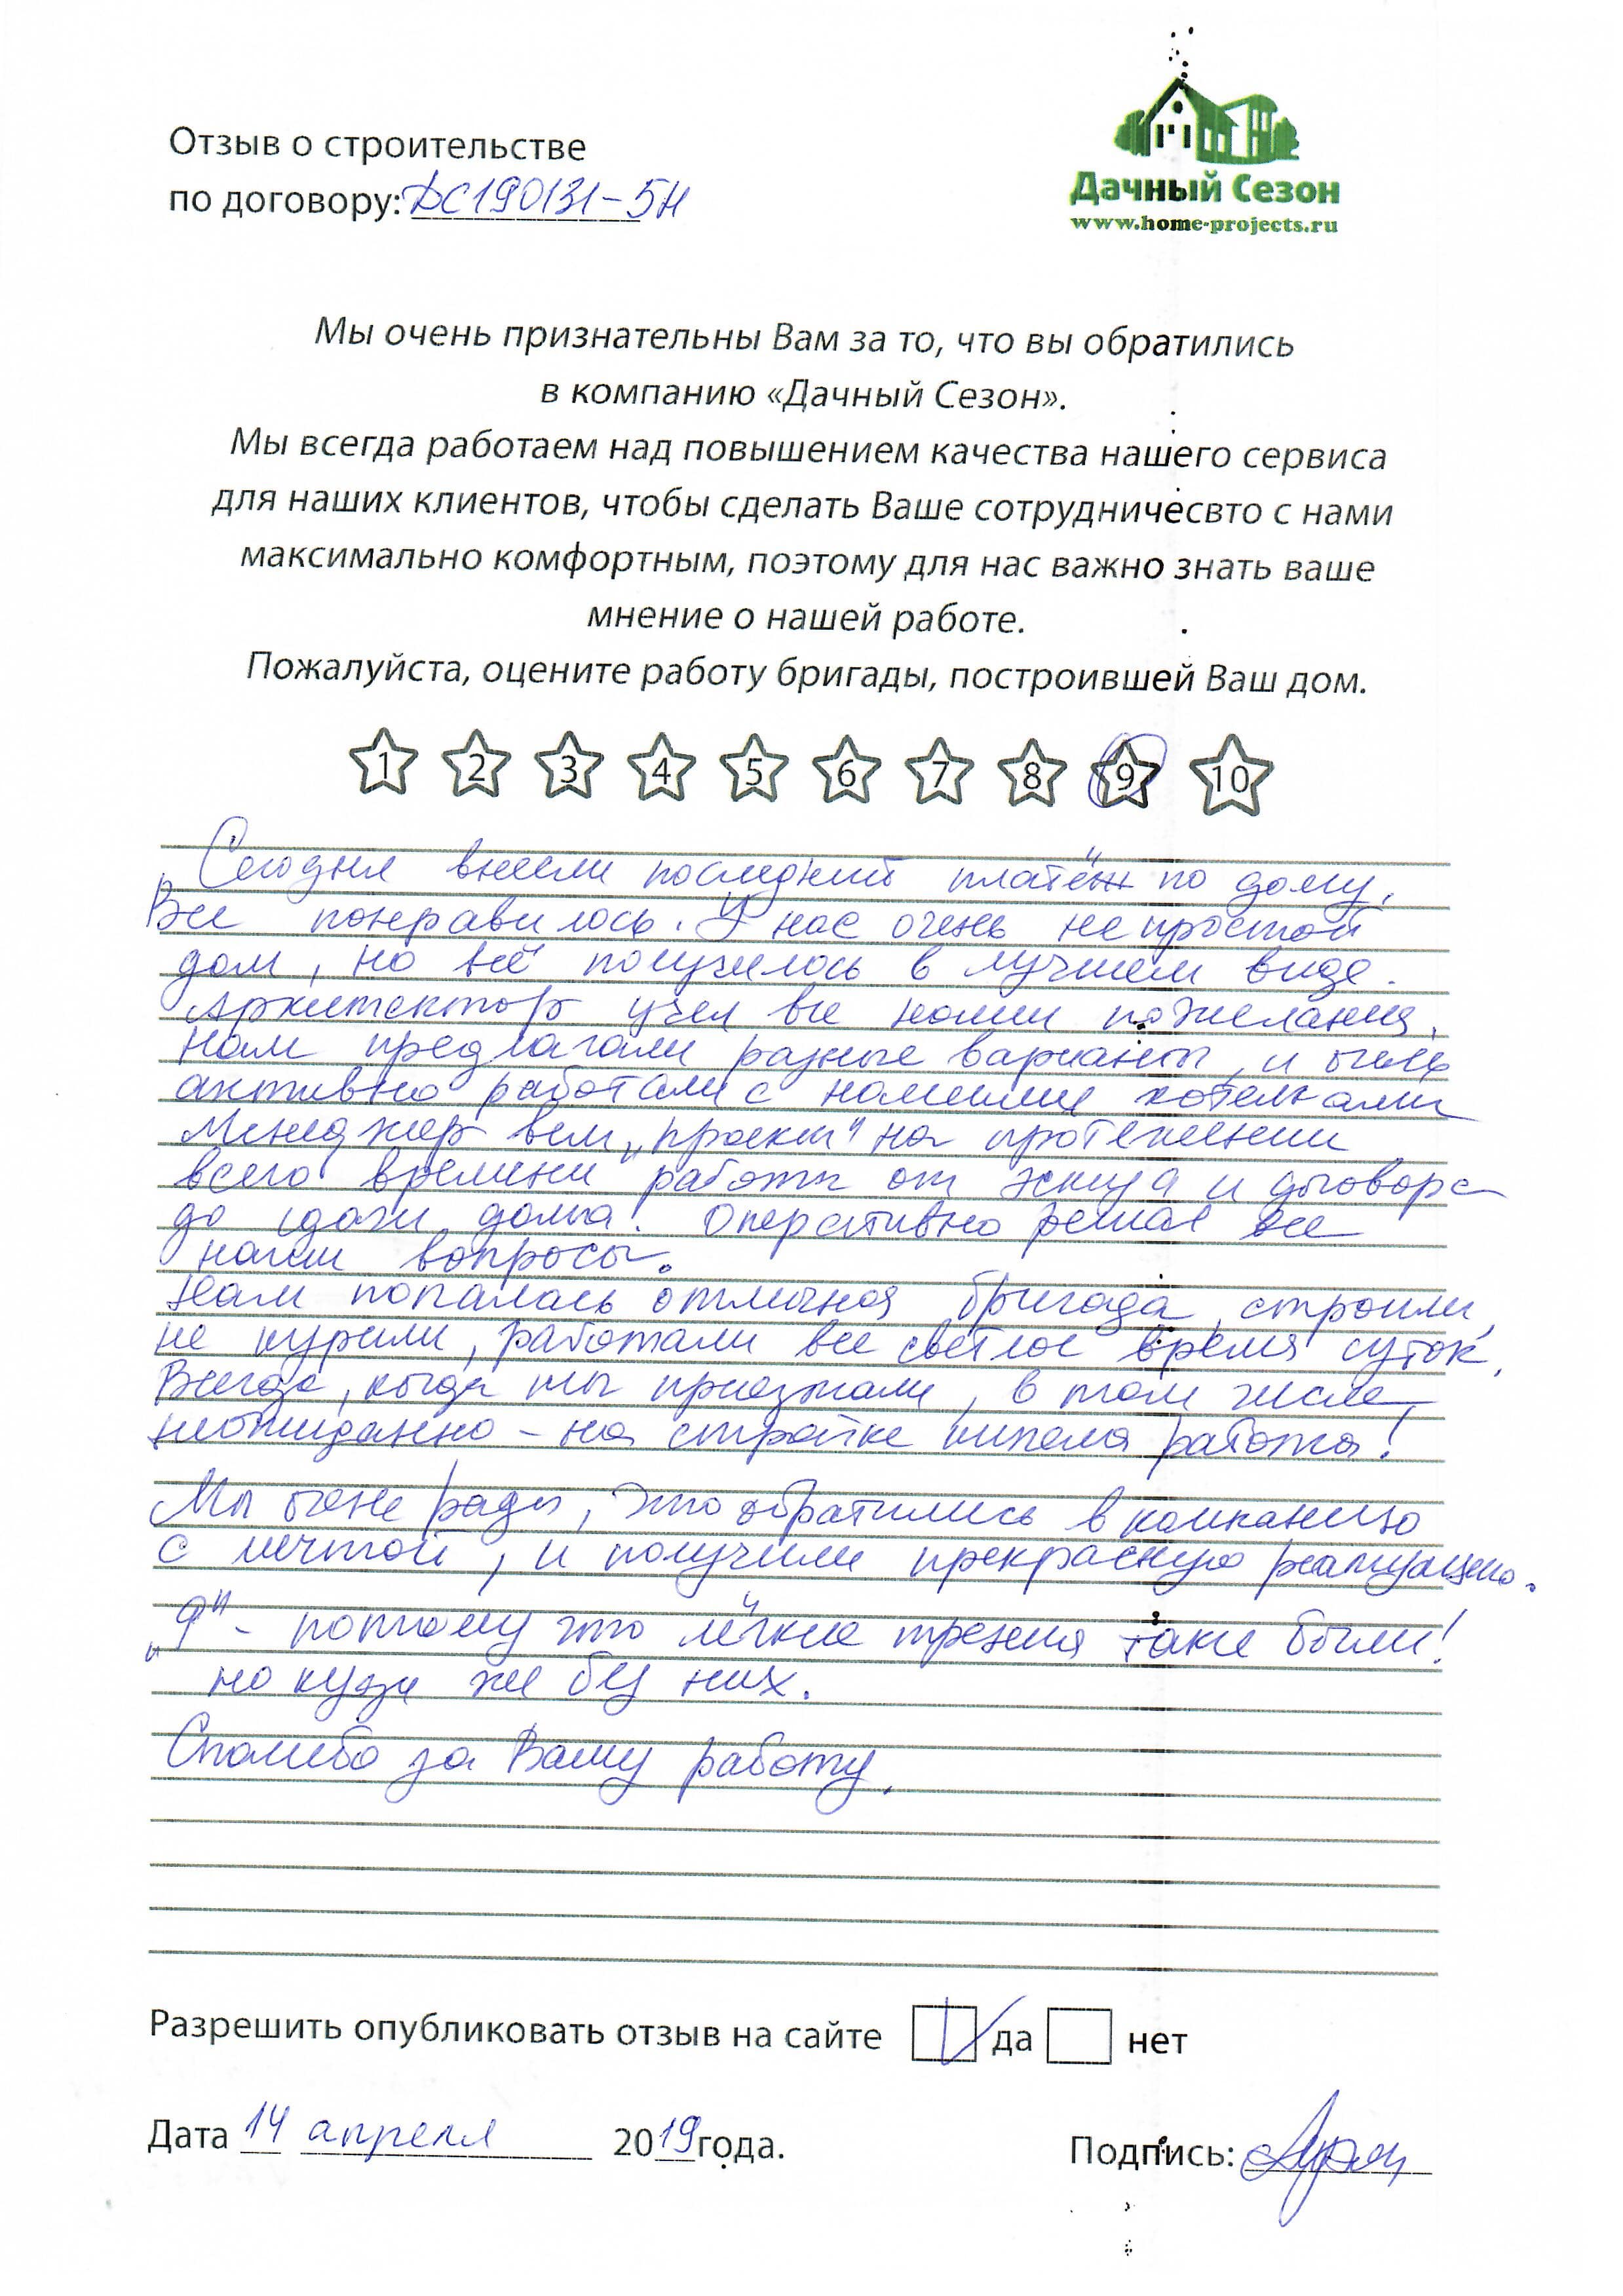 Отзыв о строительстве
по договору: ДС190131-5Н
Дачный Сезон
www.home-projects.ru
Мы очень признательны Вам за то, что вы обратились
в компанию «Дачный Сезон».
Мы всегда работаем над повышением качества нашего сервиса
для наших клиентов, чтобы сделать Ваше сотрудничесвто с нами
максимально комфортным, поэтому для нас важно знать ваше
мнение о нашей работе.
Пожалуйста, оцените работу бригады, построившей Ваш дом.
1 2 3 4 5 6 7 8 9 10
Сегодня внесли последний платёж по дому.
Все понравилось. У нас очень не простой
дом, но всё получилось в лучшем виде.
Архитектор учел все наши пожелания.
Нам предлагали разные варианты, и очень
активно работали с нашими хотелками
Менеджер вел „проект“ на протяжении
всего времени работы от эскиза и договора
до сдачи дома! Оперативно решал все
наши вопросы.
Нам попалась отличная бригада, строили,
не курили, работали все светлое время суток.
Всегда, когда мы приезжали, в том числе
неожиданно - на стройке кипела работа!
Мы очень рады, что обратились в компанию
с мечтой, и получили прекрасную реализацию.
„9“ - потому что лёгкие трения таки были!
но куда же без них.
Спасибо за Вашу работу.
Разрешить опубликовать отзыв на сайте да нет
Дата 14 апреля 2019 года. Подпись: